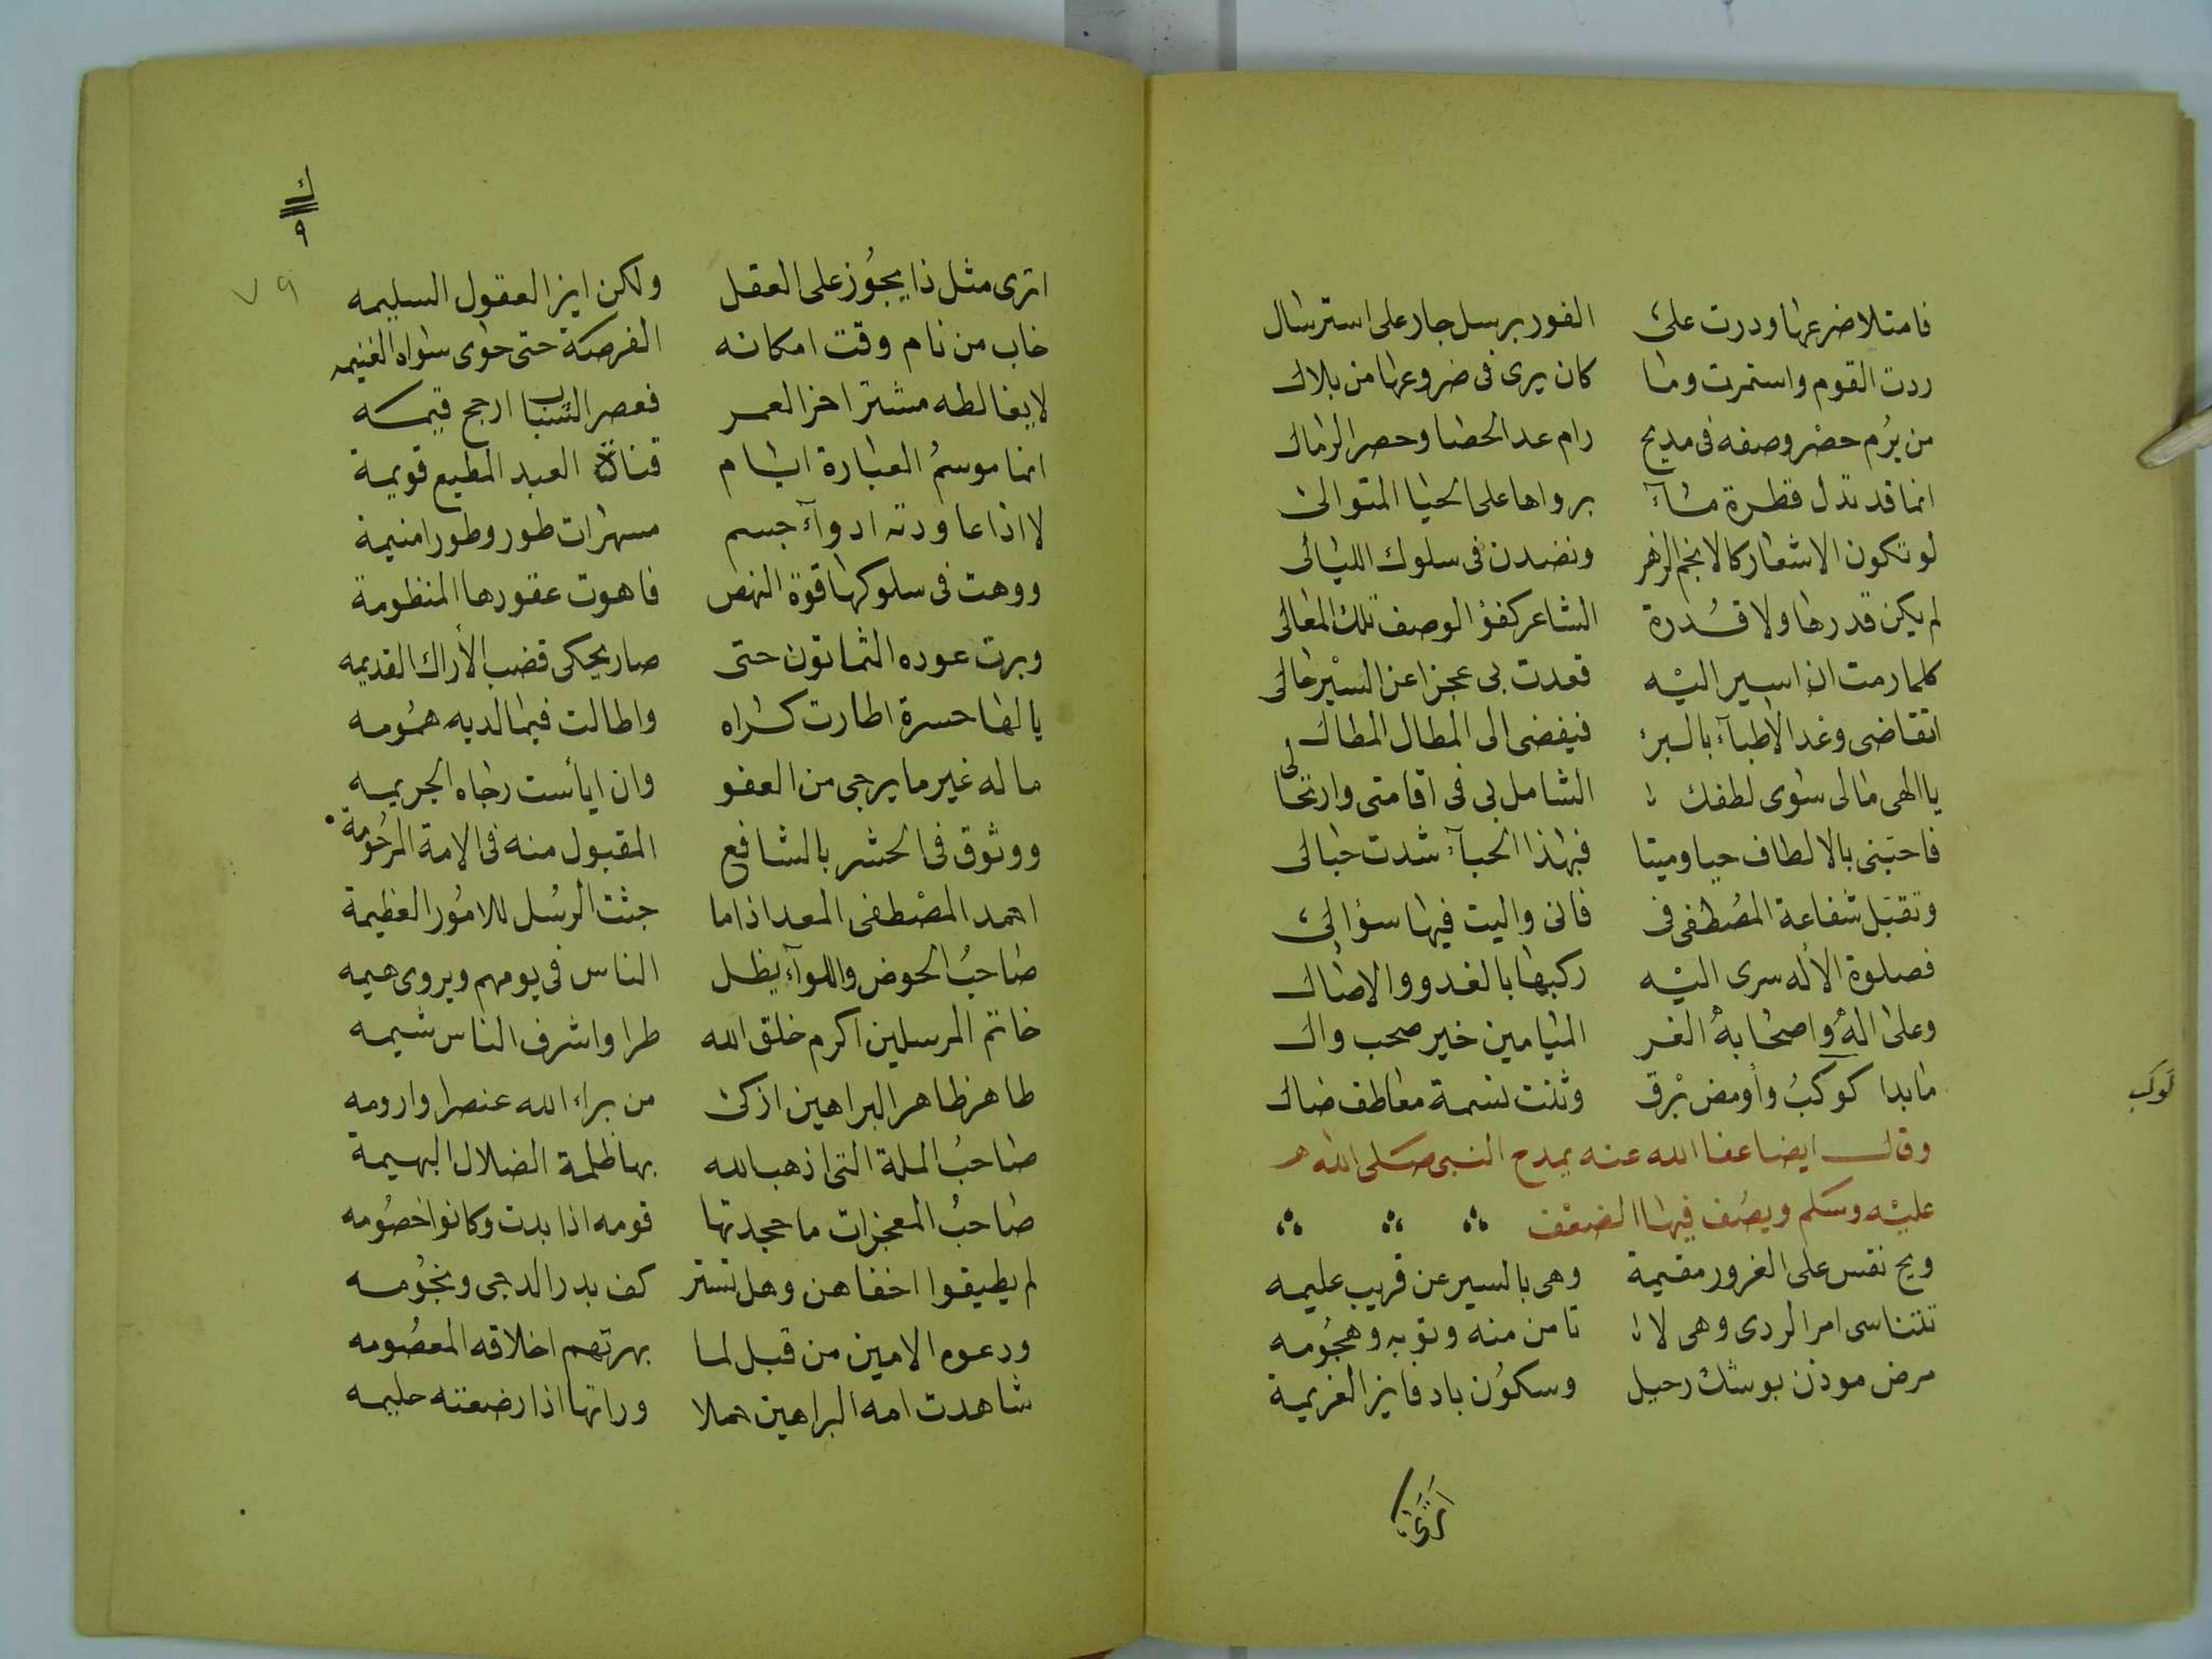 فامتلا ضرعها ودرت على الفور برسل جار على استرسال
ردت القوم واستمرت وما كان يرى فى ضروعها من بلال
من يرم حصر وصفه فى مديح رام عد الحصا وحصر الرمال
انما قد تدل قطرة مآء برواها على الحيا المتوالى
لو تكون الاشعار كالانجم الزهر ونضدن فى سلوك الليالى
لم يكن قدرها ولا قدرة الشاعر كفؤ الوصف تلك المعالى
كلما رمت ان اسير اليه قعدت بى عجزا عن السير حالى
اتقاضى وعد الاطبآء بالبرء فيفضى الى المطال المطال
يا الهى مالى سوى لطفك الشامل لى فى اقامتى وارتحالى
فاحبنى بالالطاف حيا وميتا فبهذا الحبآء شدت حبالى
وتقبل شفاعة المصطفى فى فانى واليت فيها سؤالى
فصلوة الاله سرى اليه ركبها بالغدو والاصال
وعلى اله واصحابه الغر الميامين خير صحب وال
ما بدا كوكب وأومض برق وثنت نسمة معاطف ضال
كوكب
وقال ايضا عفا الله عنه يمدح النبى صلى الله
عليه وسلم ويصف فيها الضعف
ويح نفس على الغرور مقيمة وهى بالسير عن قريب عليمه
تتناسى امر الردى وهى لا تامن منه وثوبه وهجومه
مرض موذن بوشك رحيل وسكون باد فاين العزيمة
اترى
ك
٩
٧٩
اترى مثل ذا يجوز على العقل ولكن اين العقول السليمه
خاب من نام وقت امكانه الفرصة حتى حوى سواه الغنيمه
لا يغالطه مشتر اخر العمر فعصر الشباب ارجح قيمه
انما موسم العبارة ايام قناة العبد المطيع قويمة
لا اذا عاودته ادوآء جسم مسهرات طور وطورا منيمة
ووهت فى سلوكها قوة النهض فاهوت عقودها المنظومة
وبرت عوده الثمانون حتى صار يحكى قضب الأراك القديمه
يا لها حسرة اطارت كراه واطالت فيما لديه همومه
ما له غير ما يرجى من العفو وان ايأست رجاه الجريمه
ووثوق فى الحشر بالشافع المقبول منه فى الامة المرحومة
احمد المصطفى المعد اذا ما جثت الرسل للامور العظيمة
صاحب الحوض واللوآء يظل الناس فى يومهم ويروى هيمه
خاتم المرسلين اكرم خلق الله طرا واشرف الناس شيمه
طاهر ظاهر البراهين ازكى من براء الله عنصرا وارومه
صاحب الملة التى اذهب الله بها ظلمة الضلال البهيمة
صاحب المعجزات ما جحدتها قومه اذا بدت وكانوا خصومه
لم يطيقوا اخفاهن وهل تستر كف بدر الدجى ونجومه
ودعوه الامين من قبل لما بهرتهم اخلاقه المعصومه
شاهدت امه البراهين حملا وراتها اذا رضعته حليمه